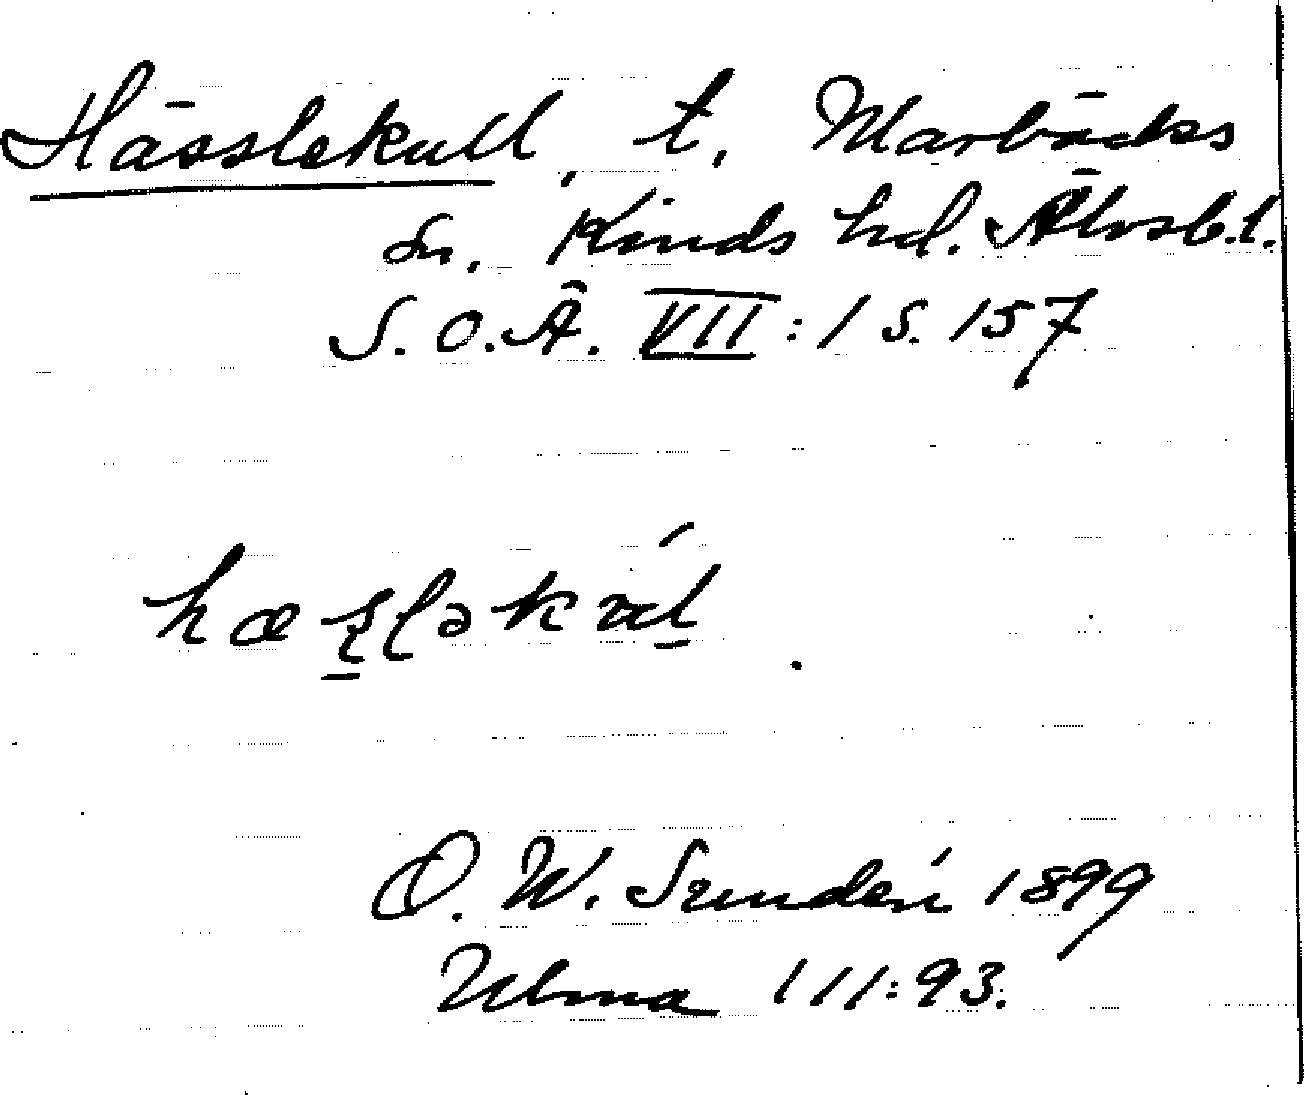 Hässlekull, t. Marbäcks
sn. Kinds hd. Älvsb.l.
S.O.Ä. VII:1 s. 157
O. W. Sundén 1899
Ulma 111:93.